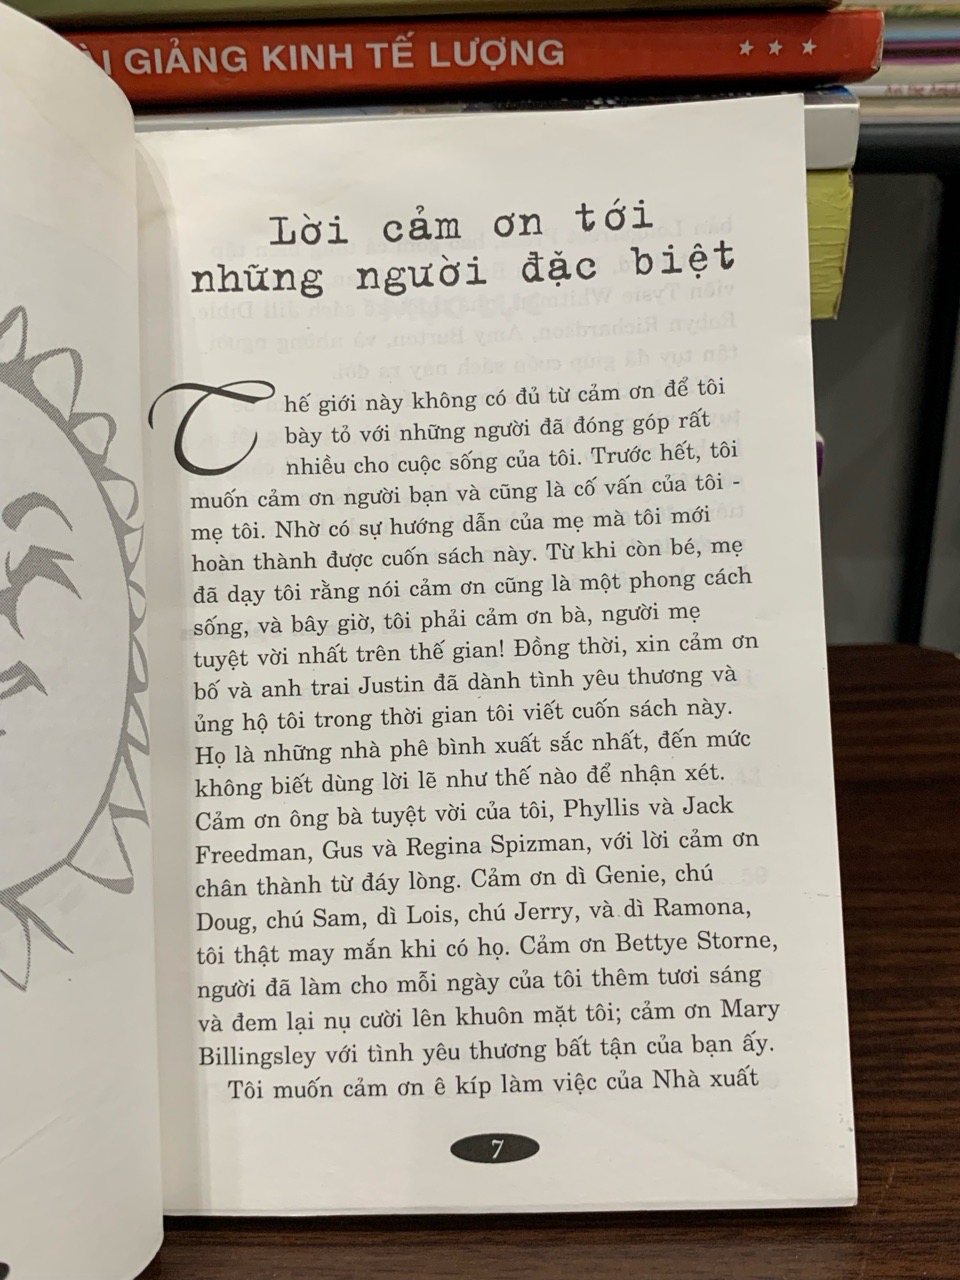 I GIẢNG KINH TẾ LƯỢNG
Lời cảm ơn tới
những người đặc biệt
Thế giới này không có đủ từ cảm ơn để tôi
bày tỏ với những người đã đóng góp rất
nhiều cho cuộc sống của tôi. Trước hết, tôi
muốn cảm ơn người bạn và cũng là cố vấn của tôi -
mẹ tôi. Nhờ có sự hướng dẫn của mẹ mà tôi mới
hoàn thành được cuốn sách này. Từ khi còn bé, mẹ
đã dạy tôi rằng nói cảm ơn cũng là một phong cách
sống, và bây giờ, tôi phải cảm ơn bà, người mẹ
tuyệt vời nhất trên thế gian! Đồng thời, xin cảm ơn
bố và anh trai Justin đã dành tình yêu thương và
ủng hộ tôi trong thời gian tôi viết cuốn sách này.
Họ là những nhà phê bình xuất sắc nhất, đến mức
không biết dùng lời lẽ như thế nào để nhận xét.
Cảm ơn ông bà tuyệt vời của tôi, Phyllis và Jack
Freedman, Gus và Regina Spizman, với lời cảm ơn
chân thành từ đáy lòng. Cảm ơn dì Genie, chú
Doug, chú Sam, dì Lois, chú Jerry, và dì Ramona,
tôi thật may mắn khi có họ. Cảm ơn Bettye Storne,
người đã làm cho mỗi ngày của tôi thêm tươi sáng
và đem lại nụ cười lên khuôn mặt tôi; cảm ơn Mary
Billingsley với tình yêu thương bất tận của bạn ấy.
Tôi muốn cảm ơn ê kíp làm việc của Nhà xuất
7